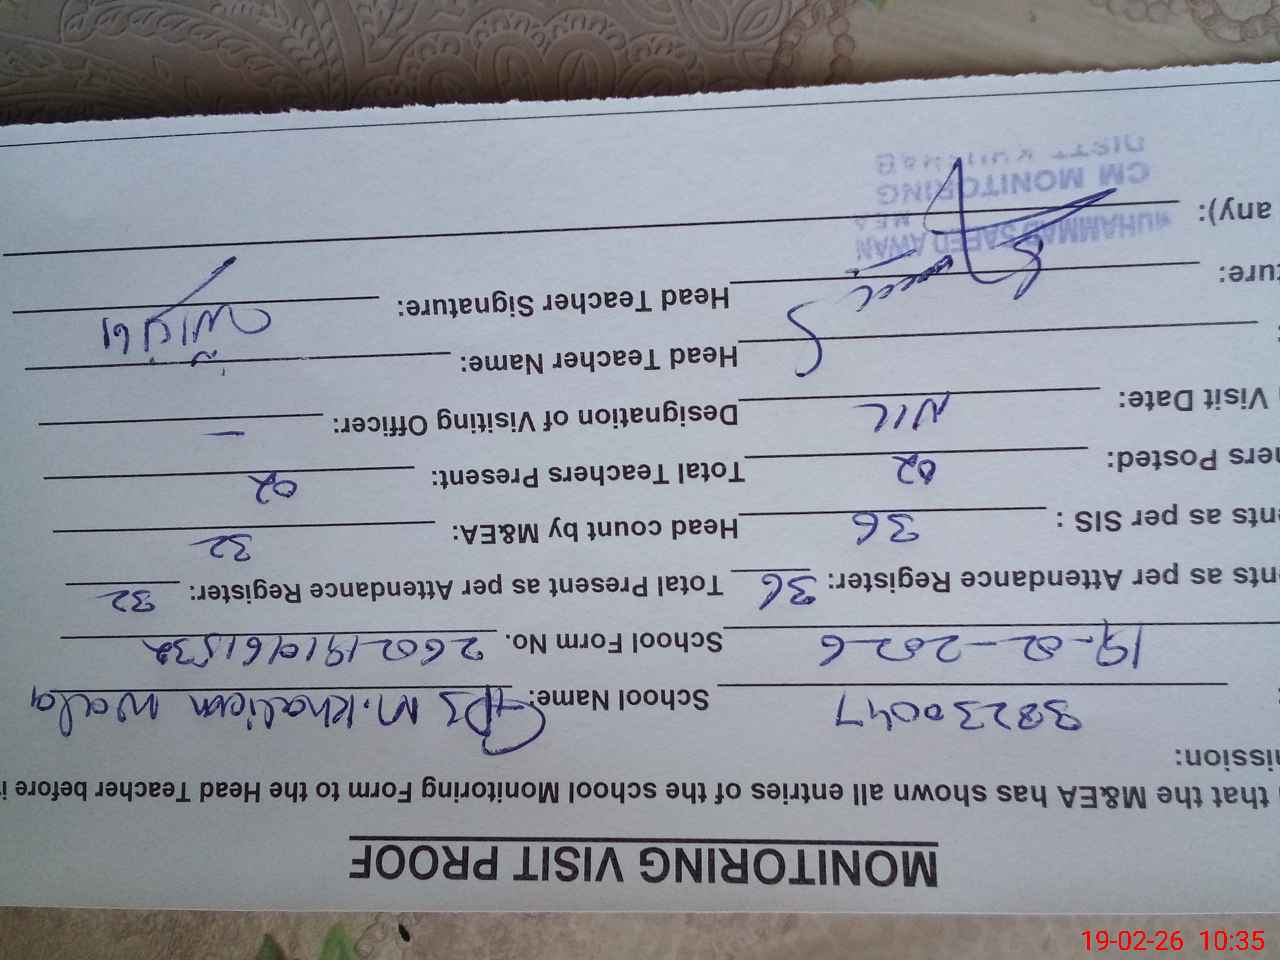 MONITORING VISIT PROOF
that the M&EA has shown all entries of the school Monitoring Form to the Head Teacher before i
ission:
38230047 School Name: GPS M. Khalieen Wala
19-02-2026 School Form No. 2602191061532
nts as per Attendance Register: 36 Total Present as per Attendance Register: 32
nts as per SIS : 36 Head count by M&EA: 32
ers Posted: 02 Total Teachers Present: 02
Visit Date: NIL Designation of Visiting Officer: –
Head Teacher Name:
ture: Saeed Head Teacher Signature:
any):
MUHAMMAD SAEED AWAN
MEA
CM MONITORING
DISTT KHUSHAB
19-02-26 10:35